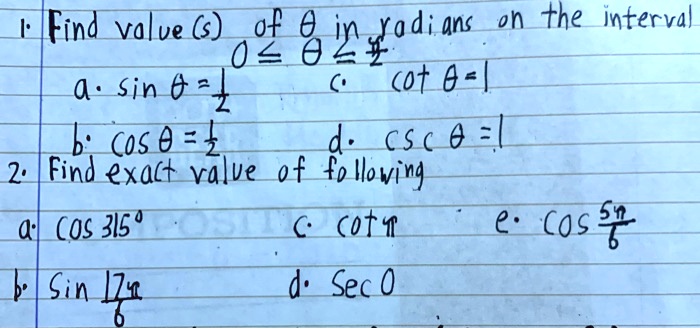 1. Find value(s) of θ in radians on the interval
0 ≤ θ ≤ π/2
a. sin θ = 1/2 c. cot θ = 1
b. cos θ = 1/2 d. csc θ = 1
2. Find exact value of following
a. cos 315° c. cot π e. cos 5π/6
b. Sin 17π/6 d. Sec 0